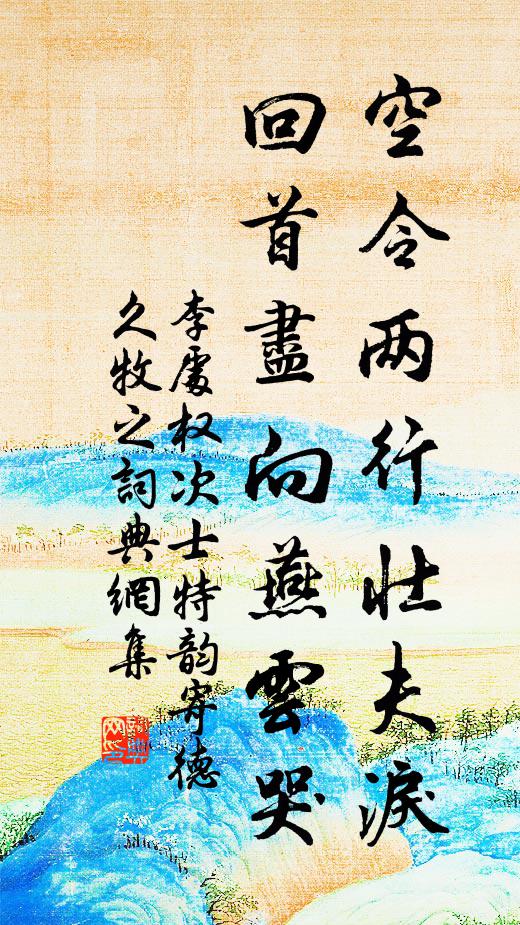 空令两行壮夫淚
回首盡向燕雲哭
李處权次士特韵寄德
久牧之詞典網集